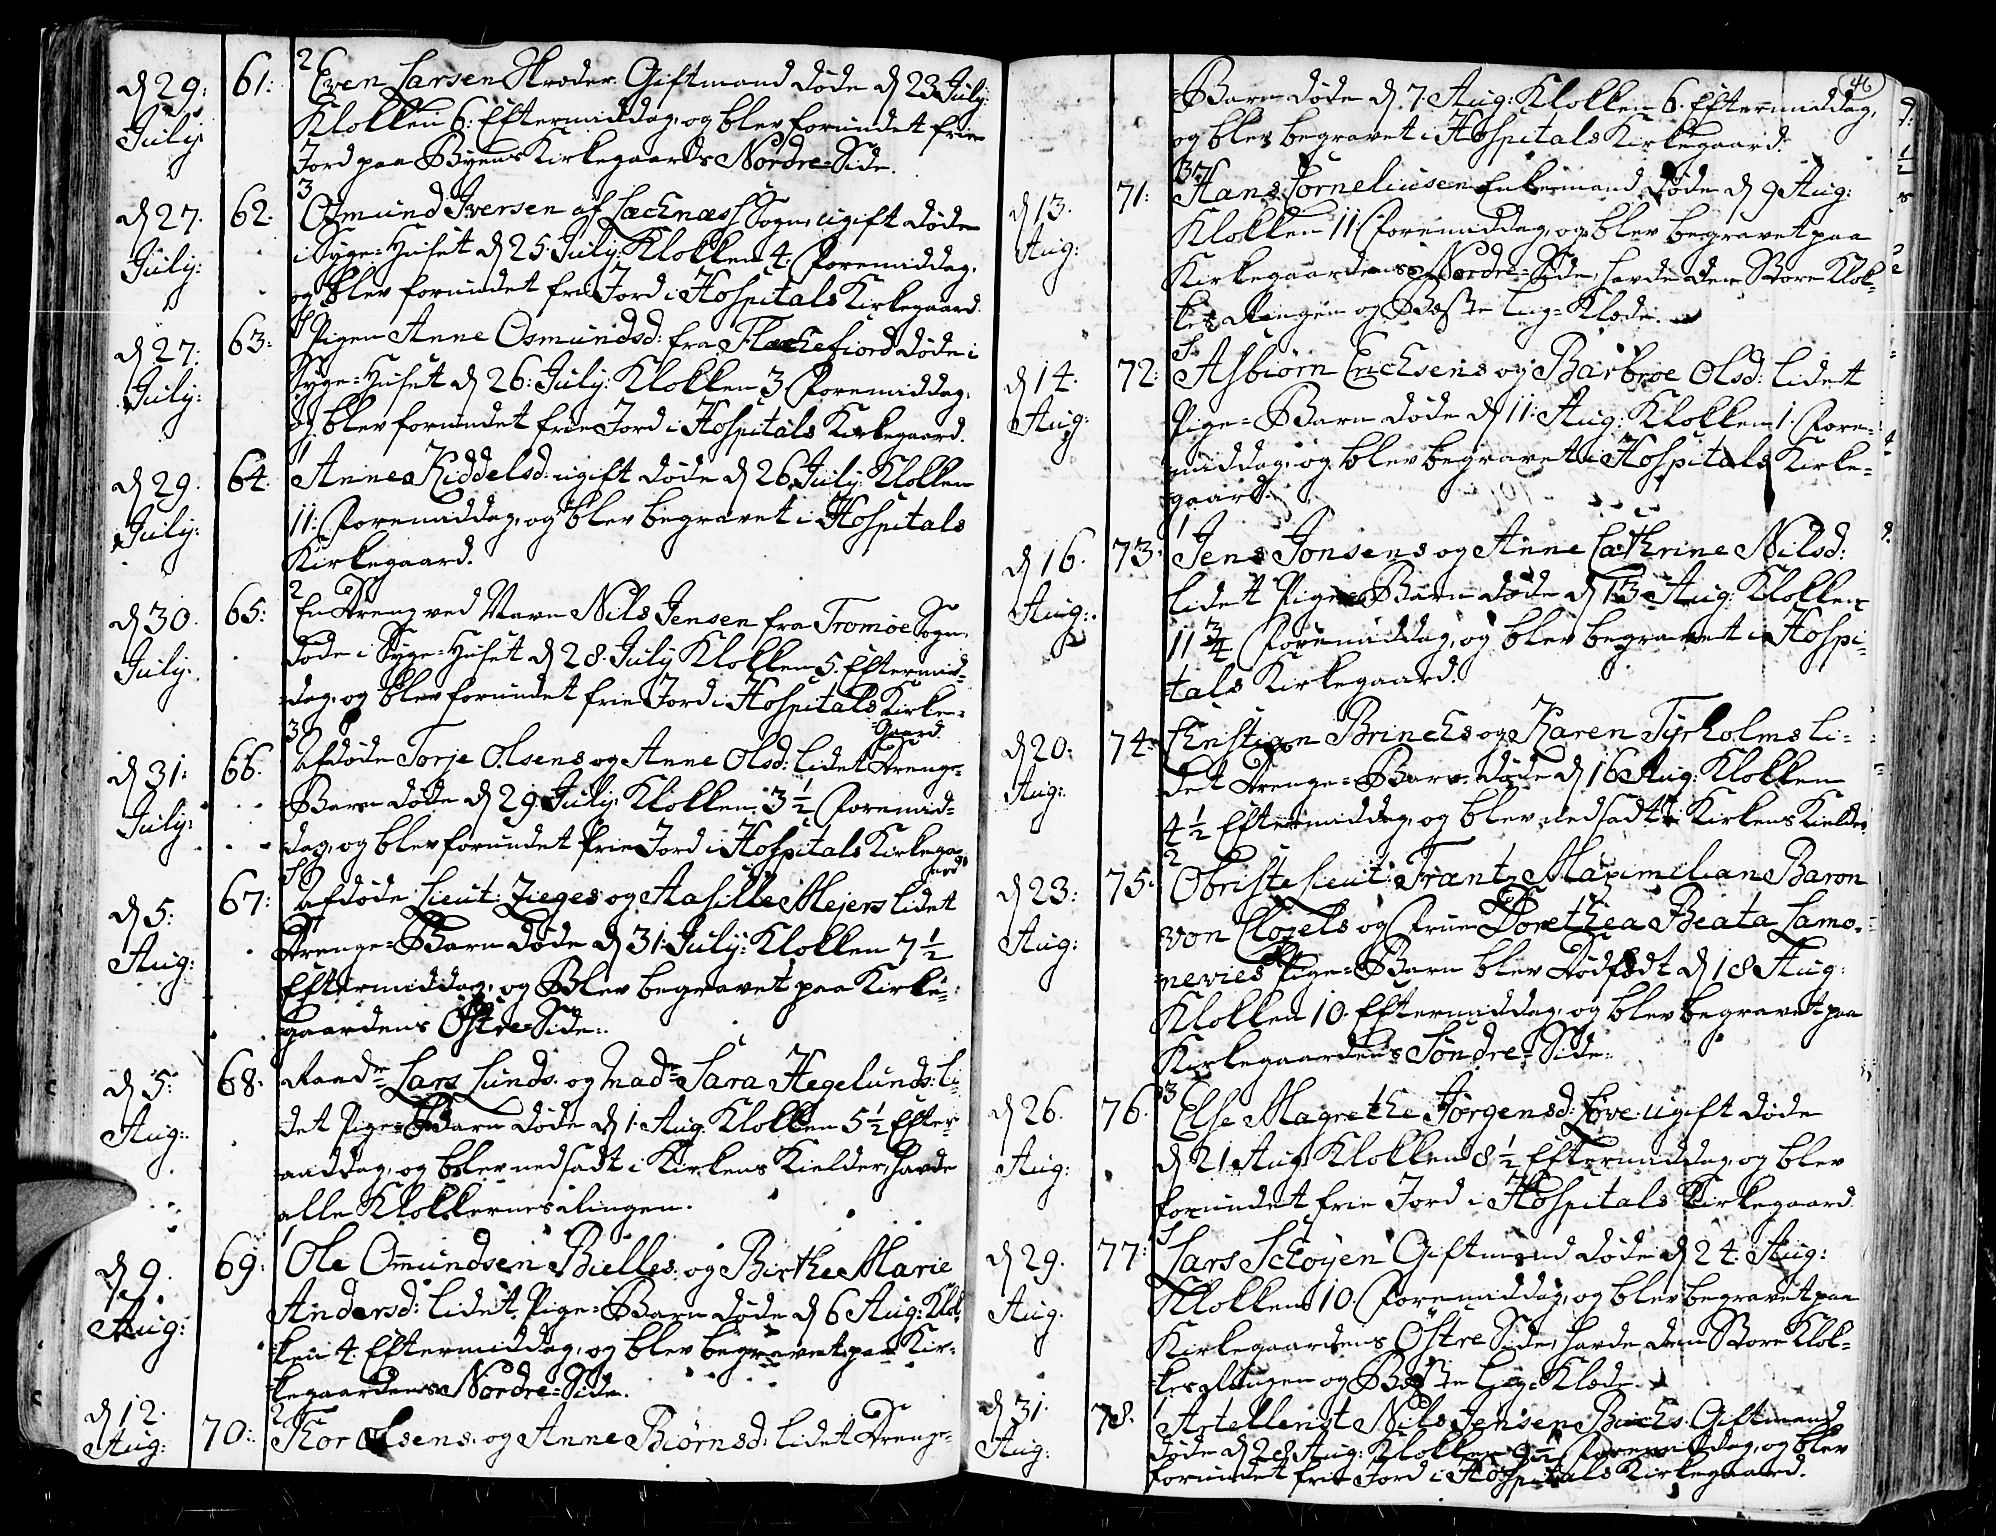 d 29: July: 61: 2 Even Larsen Skroder Giftmand døde d 23 July:
Klokken 6: Eftermiddag, og blev forundet frie
Jord paa Byens Kirkegaards Nordre=Side.
d 27. July: 62. 3 Osmund Iversen af Sogn, ugift døde
i Syge=Huset d 25 July: Klokken 4. Foremiddag,
og blev forundet frie Jord i Hospitals Kirkegaard.
d 27: July: 63: Pigen Anne Osmundsd: fra Flackefiord døde i
Syge=Huset d 26: July: Klokken 3 Foremiddag,
og blev forundet frie Jord i Hospitals Kirkegaard.
d 29. July: 64. 1 Anne Kiddelsd: ugift døde d 26 July: Klokken
11: Foremiddag, og blev begravet i Hospitals
Kirkegaard.
d 30. July: 65: 2 En Dreng ved Navn Nils Jensen fra Tromøe Sogn,
døde i Syge=Huset d 28. July Klokken 5. Eftermid-
dag, og blev forundet frie Jord i Hospitals Kirke=
Gaard.
d 31: July: 66. 3 Afdøde Torje Olsens og Anne Olsd: lidet Drenge=
Barn døde d 29 July: Klokken 3 1/2 Foremid=
dag, og blev forundet frie Jord i Hospitals Kirkega-
ard
d 5: Aug: 67: Afdøde Lieut: Zieges og Aasille Mejers lidet
Drenge=Barn døde d 31: July: Klokken 7 1/2
Eftermiddag, og Blev begravet paa Kirke=
gaardens Østre=Side:
d 5: Aug: 68. Lars Lunds. og Mad: Sara Hegelunds: li=
det Pige=Barn døde d 1. Aug: Klokken 5 1/2 Efter-
middag, og blev nedsadt i Kirkens Kielder, havde
alle Klokkernes Ringen.
d 9. Aug: 69: 1 Ole Omundsen Bielles. og Birthe Marie
Andersd: lidet Pige=Barn døde d 6 Aug: Klok-
ken 4. Eftermiddag, og blev begravet paa Kir=
kegaardens Nordre=Side.
d 12. Aug: 70: 2 Thor Olsens. og Anne Biørnsd: lidet Drenge=
46
Barn døde d 7. Aug: Klokken 6. Eftermiddag,
og blev begravet i Hospitals Kirkegaard.
d 13. Aug: 71: 3 Hans Corneliusen Enkemand døde d 9 Aug:
Klokken 11: Foremiddag, og blev begravet paa
Kirkegaardens Nordre=Side, havde den Store Klok=
kes Ringen og Beste Liig=Klæde.
d 14. Aug: 72: Asbiørn Erichsens og Barbroe Olsd: lidet
Pige=Barn døde d 11: Aug: Klokken 1. Fore=
middag, og blev begravet i Hospitals Kirke=
gaard.
d 16. Aug: 73: 1 Jens Jonsens og Anne Cathrine Nilsd:
lidet Pige=Barn døde d 13 Aug: Klokken
11 3/4 Foremiddag, og blev begravet i Hospi=
tals Kirkegaard.
d 20: Aug: 74: Christian Brincks og Karen Tyrholms li=
det Drenge=Barn døde d 16 Aug: Klokken
4 1/2 Eftermiddag, og blev nedsadt i Kirkens Kielder
d 23: Aug: 75. 2 Obriste Lieut: Frantz Maximilian Baron
von og Frue Dorethea Beata Lamo-
nevies Pige=Barn blev Dødfødt d 18 Aug:
Klokken 10. Eftermiddag, og blev begravet paa
Kirkegaardens Søndre=Side:
d 26. Aug: 76. 3 Else Magrethe Jørgensd: Løve. ugift døde
d 21 Aug: Klokken 8 1/2 Eftermiddag, og blev
forundet frie Jord i Hospitals Kirkegaard
d 29. Aug. 77: Lars Schøyen Giftmand døde d 24. Aug:
Klokken 10. Foremiddag, og blev begravet paa
Kirkegaardens Østre Side, havde den Store Klok=
kes Ringen og Beste Liig=Klæde.
d 31. Aug: 78. 1 Artellerist Nils Jensen Buchs. Giftmand
døde d 28 Aug: Klokken 9 1/2 Foremiddag, og blev
forundet frie Jord i Hospitals Kirkegaard.